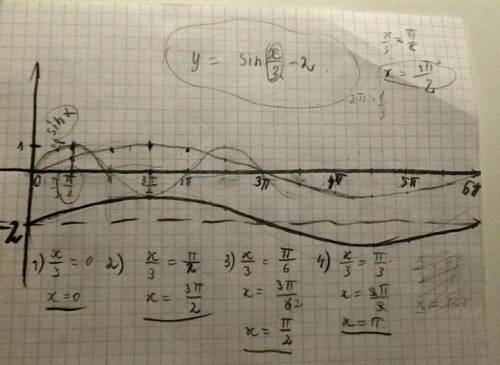 y = sin x/3 - 2
x/3 = π/2
x = 3π/2
2π · 1/3
y = sin x
1
0 π/2 π 3π/2 2π 3π 4π 5π 6π
-2
1) x/3 = 0
x = 0
2) x/3 = π/2
x = 3π/2
3) x/3 = π/6
x = 3π/6 2
x = π/2
4) x/3 = π/3
x = 3π/3
x = π